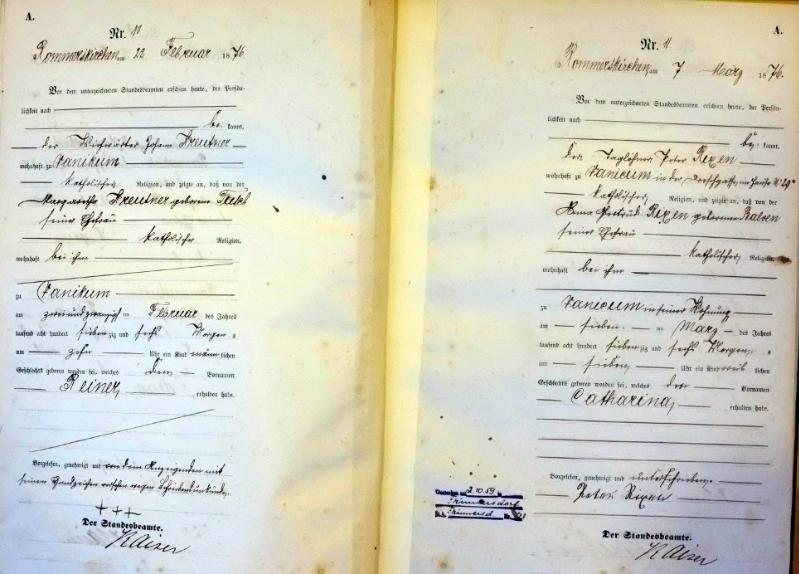 A.
Nr. 10
Rommerskirchen am 22 Februar 1876.
Vor dem unterzeichneten Standesbeamten erschien heute, der Persön-
lichkeit nach
be kannt,
der Johann Kreutner
wohnhaft zu Vanikum
katholischer Religion, und zeigte an, daß von der
Margaretha Kreutner geborene
seiner Ehefrau
katholischer Religion,
wohnhaft bei ihm
zu Vanikum
am zweiundzwanzigsten Februar des Jahres
tausend acht hundert siebenzig und sechs Morgens
um zehn Uhr ein Kind männlichen
Geschlechts geboren worden sei, welches den Vornamen
Reiner erhalten habe.
Vorgelesen, genehmigt und von dem Anzeigenden mit
seinem Handzeichen versehen wegen
+++
Der Standesbeamte.
Kaiser
A.
Nr. 11
Rommerskirchen, am 7. März 1876.
Vor dem unterzeichneten Standesbeamten erschien heute, der Persön-
lichkeit nach
be kannt,
der Taglöhner Peter Rixen
wohnhaft zu Vanicum in der
katholischer Religion, und zeigte an, daß von der
Anna Gertrud Rixen geborenen Balven
seiner Ehefrau
katholischer Religion,
wohnhaft bei ihm
zu Vanicum in seiner Wohnung
am sieben März des Jahres
tausend acht hundert siebenzig und sechs Morgens
um sieben Uhr ein Kind weiblichen
Geschlechts geboren worden sei, welches den Vornamen
Catharina erhalten habe.
Vorgelesen, genehmigt und unterschrieben
Peter Rixen
2.10.59
Der Standesbeamte.
Kaiser